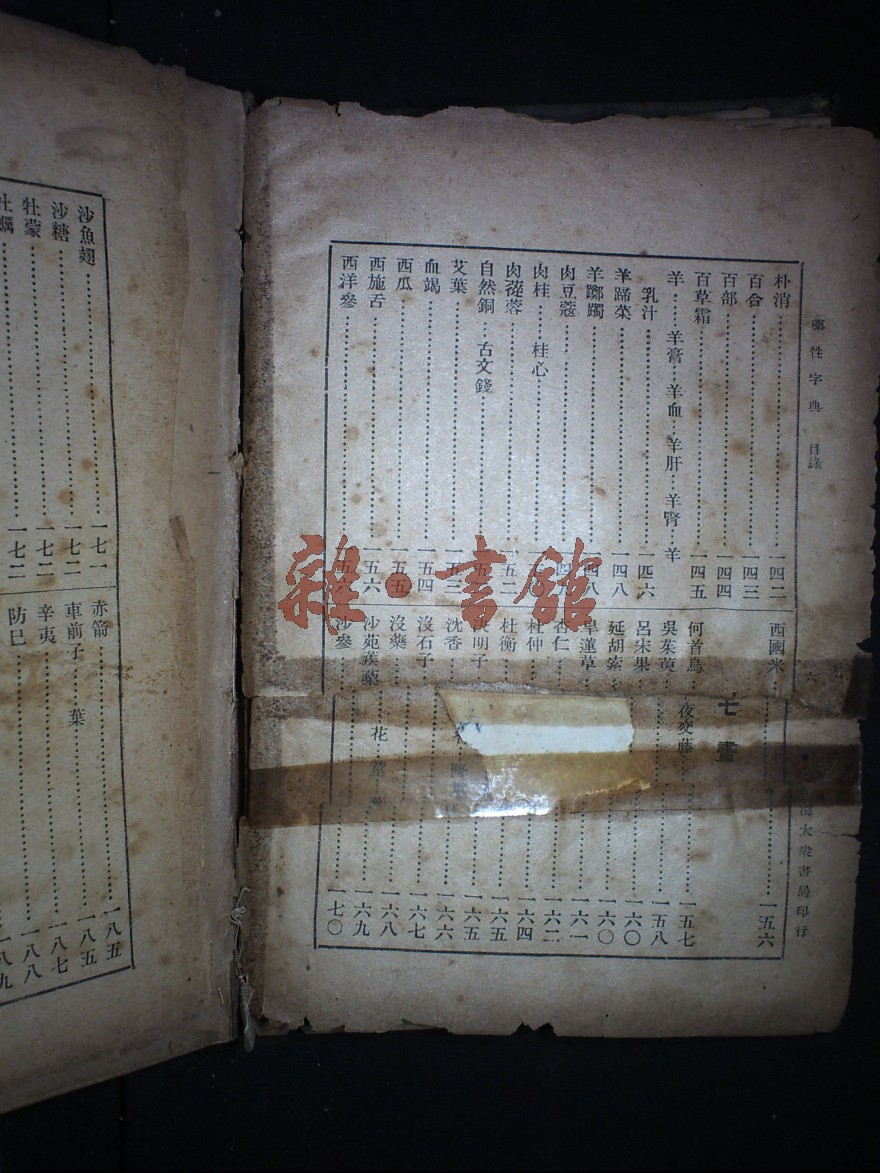 藥性字典 目錄
朴消 一四二
百合 一四三
百部 一四四
百草霜 一四五
羊 羊膏 羊血 羊肝 羊腎 羊
乳汁 一四六
羊蹄菜 一四八
羊躑躅 一四八
肉豆蔻
肉桂 桂心
肉蓯蓉 一五二
自然銅 古文錢
艾葉 一五三
血竭 一五四
西瓜 一五五
西施舌 一五六
西洋參 一五六
西國米 一五六
七畫
何首烏 夜交藤 一五七
吳茱萸 一五八
呂宋果 一六〇
延胡索 一六〇
旱蓮草 一六一
杏仁 一六二
杜仲 一六四
杜衡 一六五
決明子 一六五
沈香 一六六
沒石子 一六七
沒藥 一六八
沙苑蒺藜 花 一六九
沙參 一七〇
大衆書局印行
沙魚翅 一七一
沙糖 一七二
牡蒙 一七二
牡蠣 一七二
赤箭 一八五
車前子 葉 一八五
辛夷 一八七
防巳 一八八
八九
雜·書館